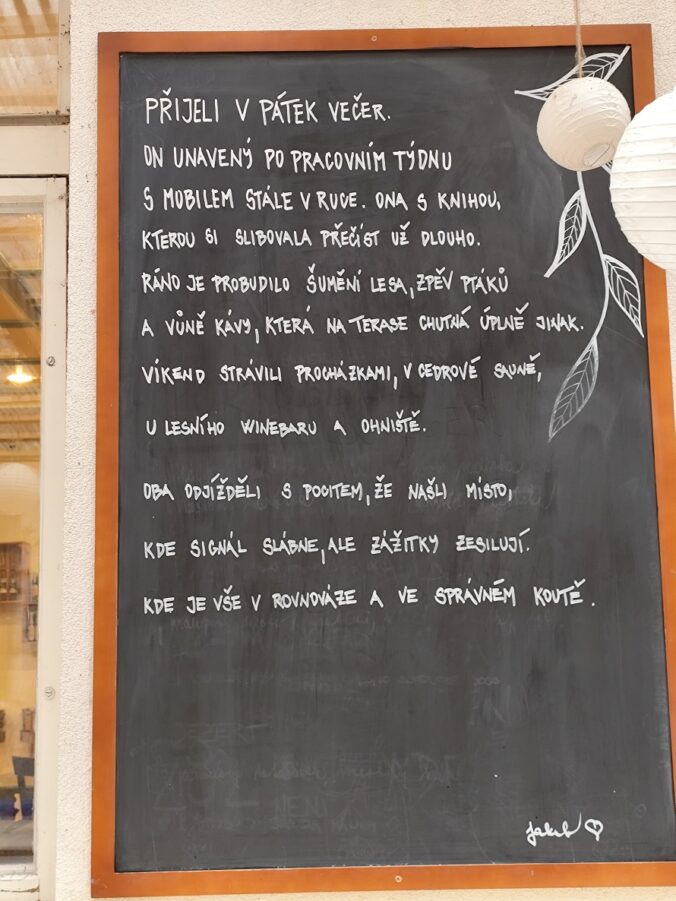 PŘIJELI V PÁTEK VEČER.
ON UNAVENÝ PO PRACOVNÍM TÝDNU
S MOBILEM STÁLE V RUCE. ONA S KNIHOU,
KTEROU SI SLIBOVALA PŘEČÍST UŽ DLOUHO.
RÁNO JE PROBUDILO ŠUMĚNÍ LESA, ZPĚV PTÁKŮ
A VŮNĚ KÁVY, KTERÁ NA TERASE CHUTNÁ ÚPLNĚ JINAK.
VÍKEND STRÁVILI PROCHÁZKAMI, V CEDROVÉ SAUNĚ,
U LESNÍHO WINEBARU A OHNIŠTĚ.
OBA ODJÍŽDĚLI S POCITEM, ŽE NAŠLI MÍSTO,
KDE SIGNÁL SLÁBNE, ALE ZÁŽITKY ZESILUJÍ.
KDE JE VŠE V ROVNOVÁZE A VE SPRÁVNÉM KOUTĚ.